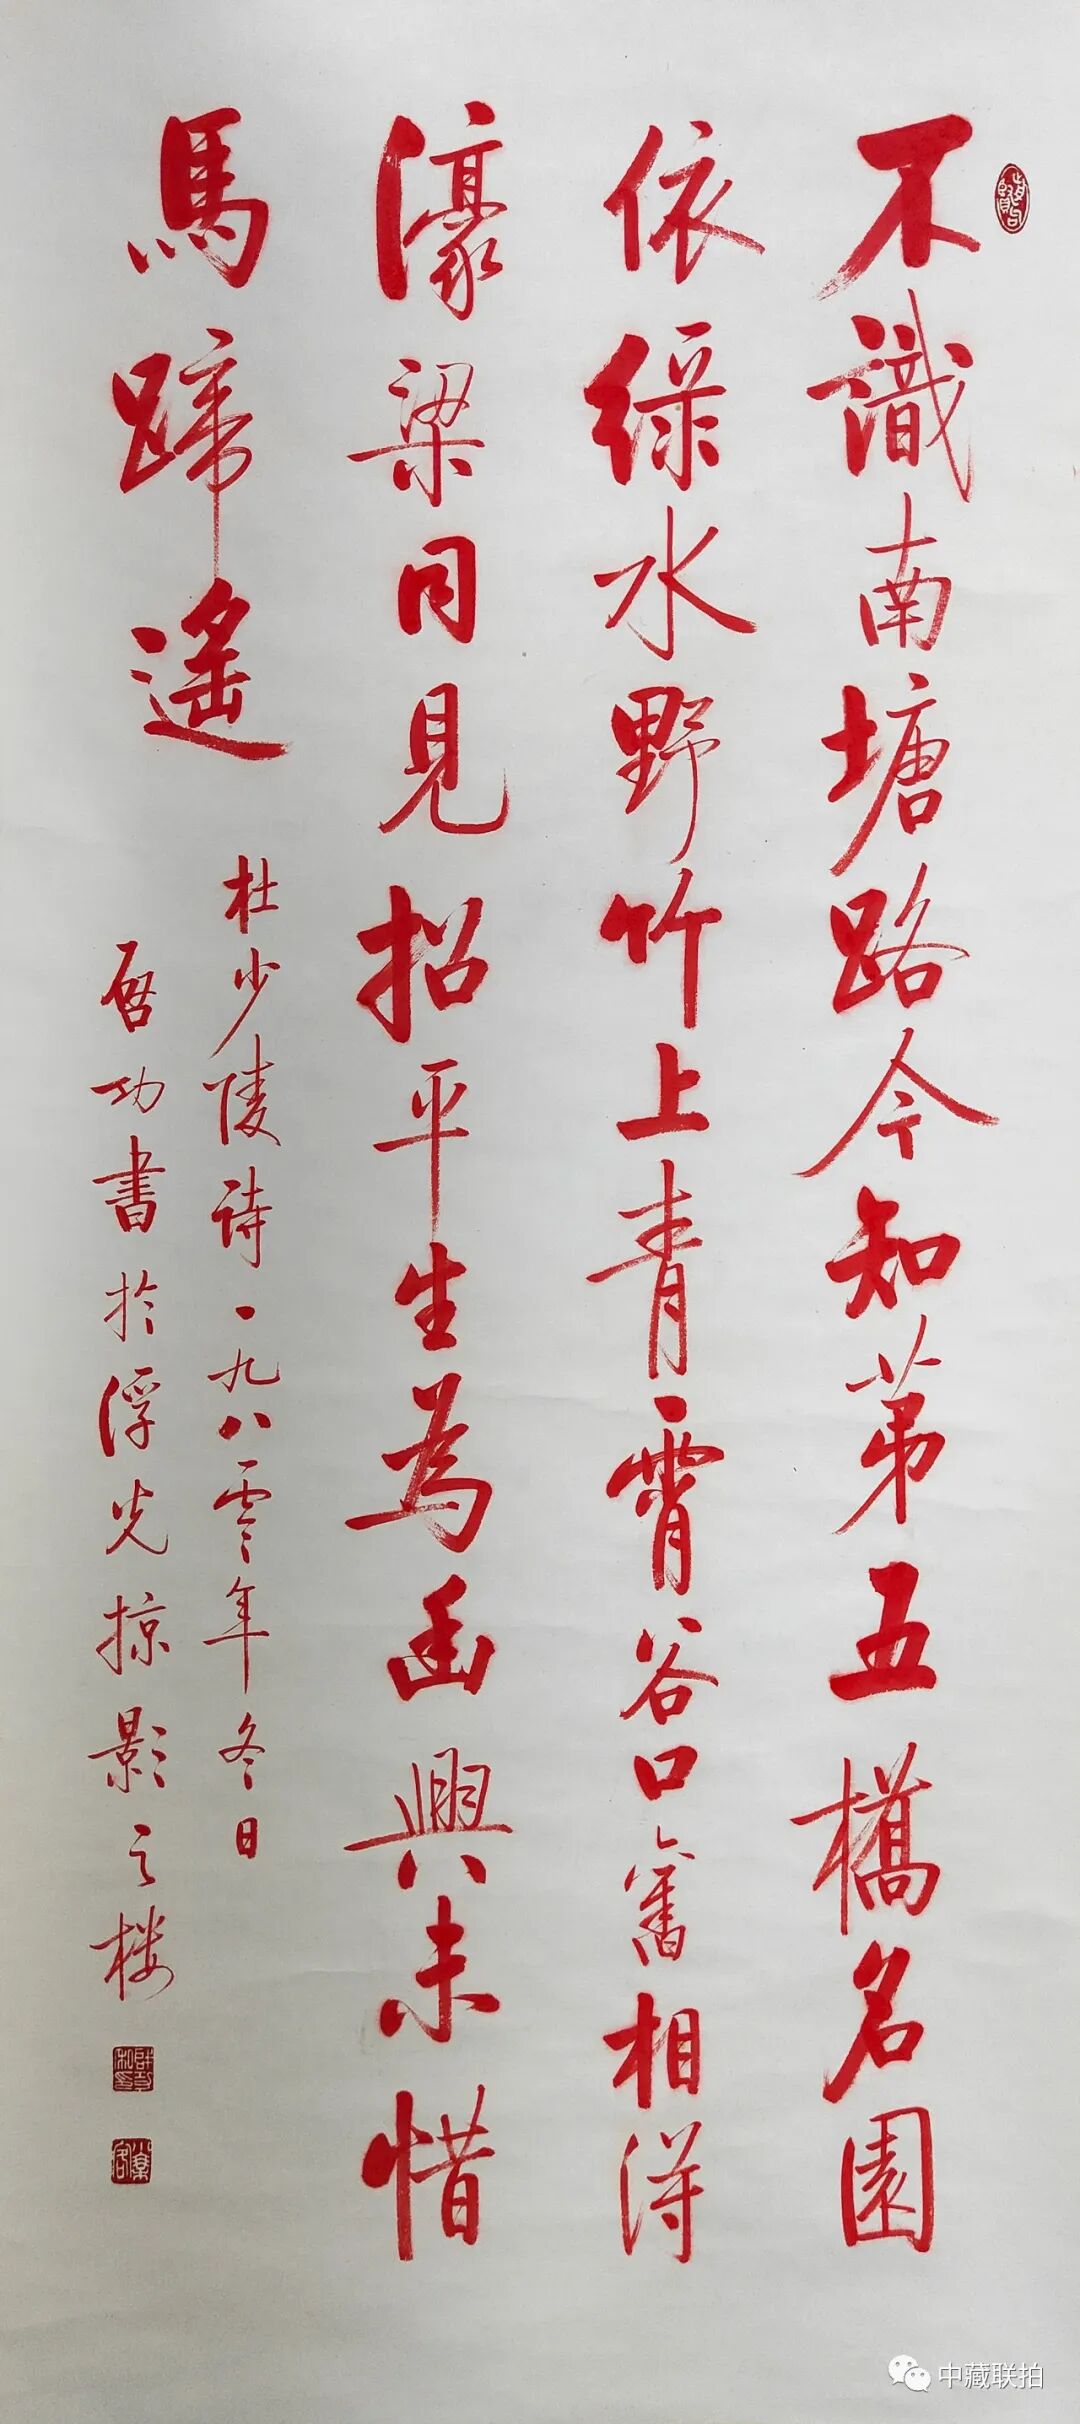 不識南塘路今知第五橋名園
依綠水野竹上青霄谷口舊相得
濠梁同見招平生為幽興未惜
馬蹄遙
杜少陵詩一九八零年冬日
啟功書於浮光掠影之樓
中藏联拍